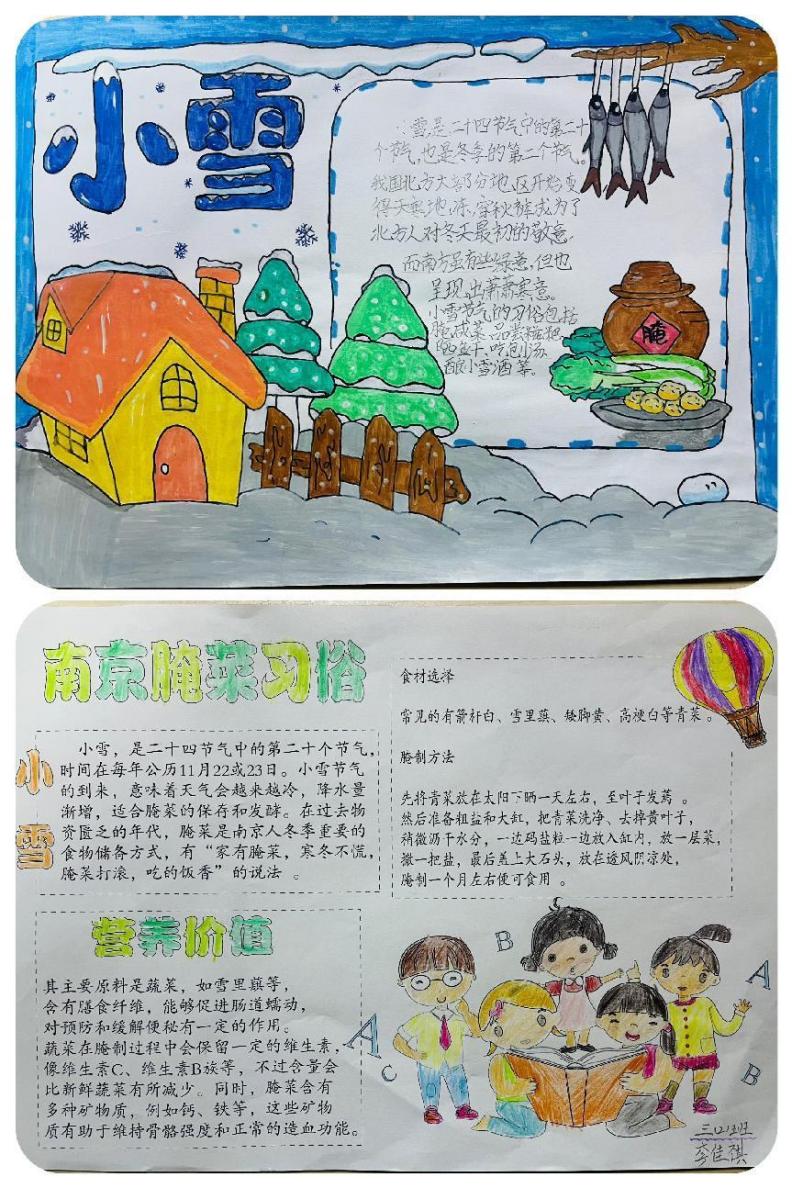 小雪
小雪,是二十四节气中的第二十
个节气,也是冬季的第二个节气。
我国北方大部分地区开始变
得天寒地冻,穿秋裤成为了
北方人对冬天最初的敬意.
而南方虽有些绿意,但也
呈现出萧萧寒意。
小雪节气的习俗包括
腌咸菜 品尝糍粑
晒鱼干、吃刨汤
酿小雪酒等。
腌
南京腌菜习俗
小雪
小雪，是二十四节气中的第二十个节气，
时间在每年公历11月22或23日。小雪节气
的到来，意味着天气会越来越冷，降水量
渐增，适合腌菜的保存和发酵。在过去物
资匮乏的年代，腌菜是南京人冬季重要的
食物储备方式，有“家有腌菜，寒冬不慌，
腌菜打滚，吃的饭香”的说法 。
食材选择
常见的有箭杆白、雪里蕻、矮脚黄、高梗白等青菜 。
腌制方法
先将青菜放在太阳下晒一天左右，至叶子发蔫 。
然后准备粗盐和大缸，把青菜洗净、去掉黄叶子，
稍微沥干水分，一边码盐粒一边放入缸内，放一层菜，
撒一把盐，最后盖上大石头，放在透风阴凉处，
腌制一个月左右便可食用 。
营养价值
其主要原料是蔬菜，如雪里蕻等，
含有膳食纤维，能够促进肠道蠕动，
对预防和缓解便秘有一定的作用。
蔬菜在腌制过程中会保留一定的维生素，
像维生素C、维生素B族等，不过含量会
比新鲜蔬菜有所减少。同时，腌菜含有
多种矿物质，例如钙、铁等，这些矿物
质有助于维持骨骼强度和正常的造血功能。
B
A
A
C
B
李佳祺